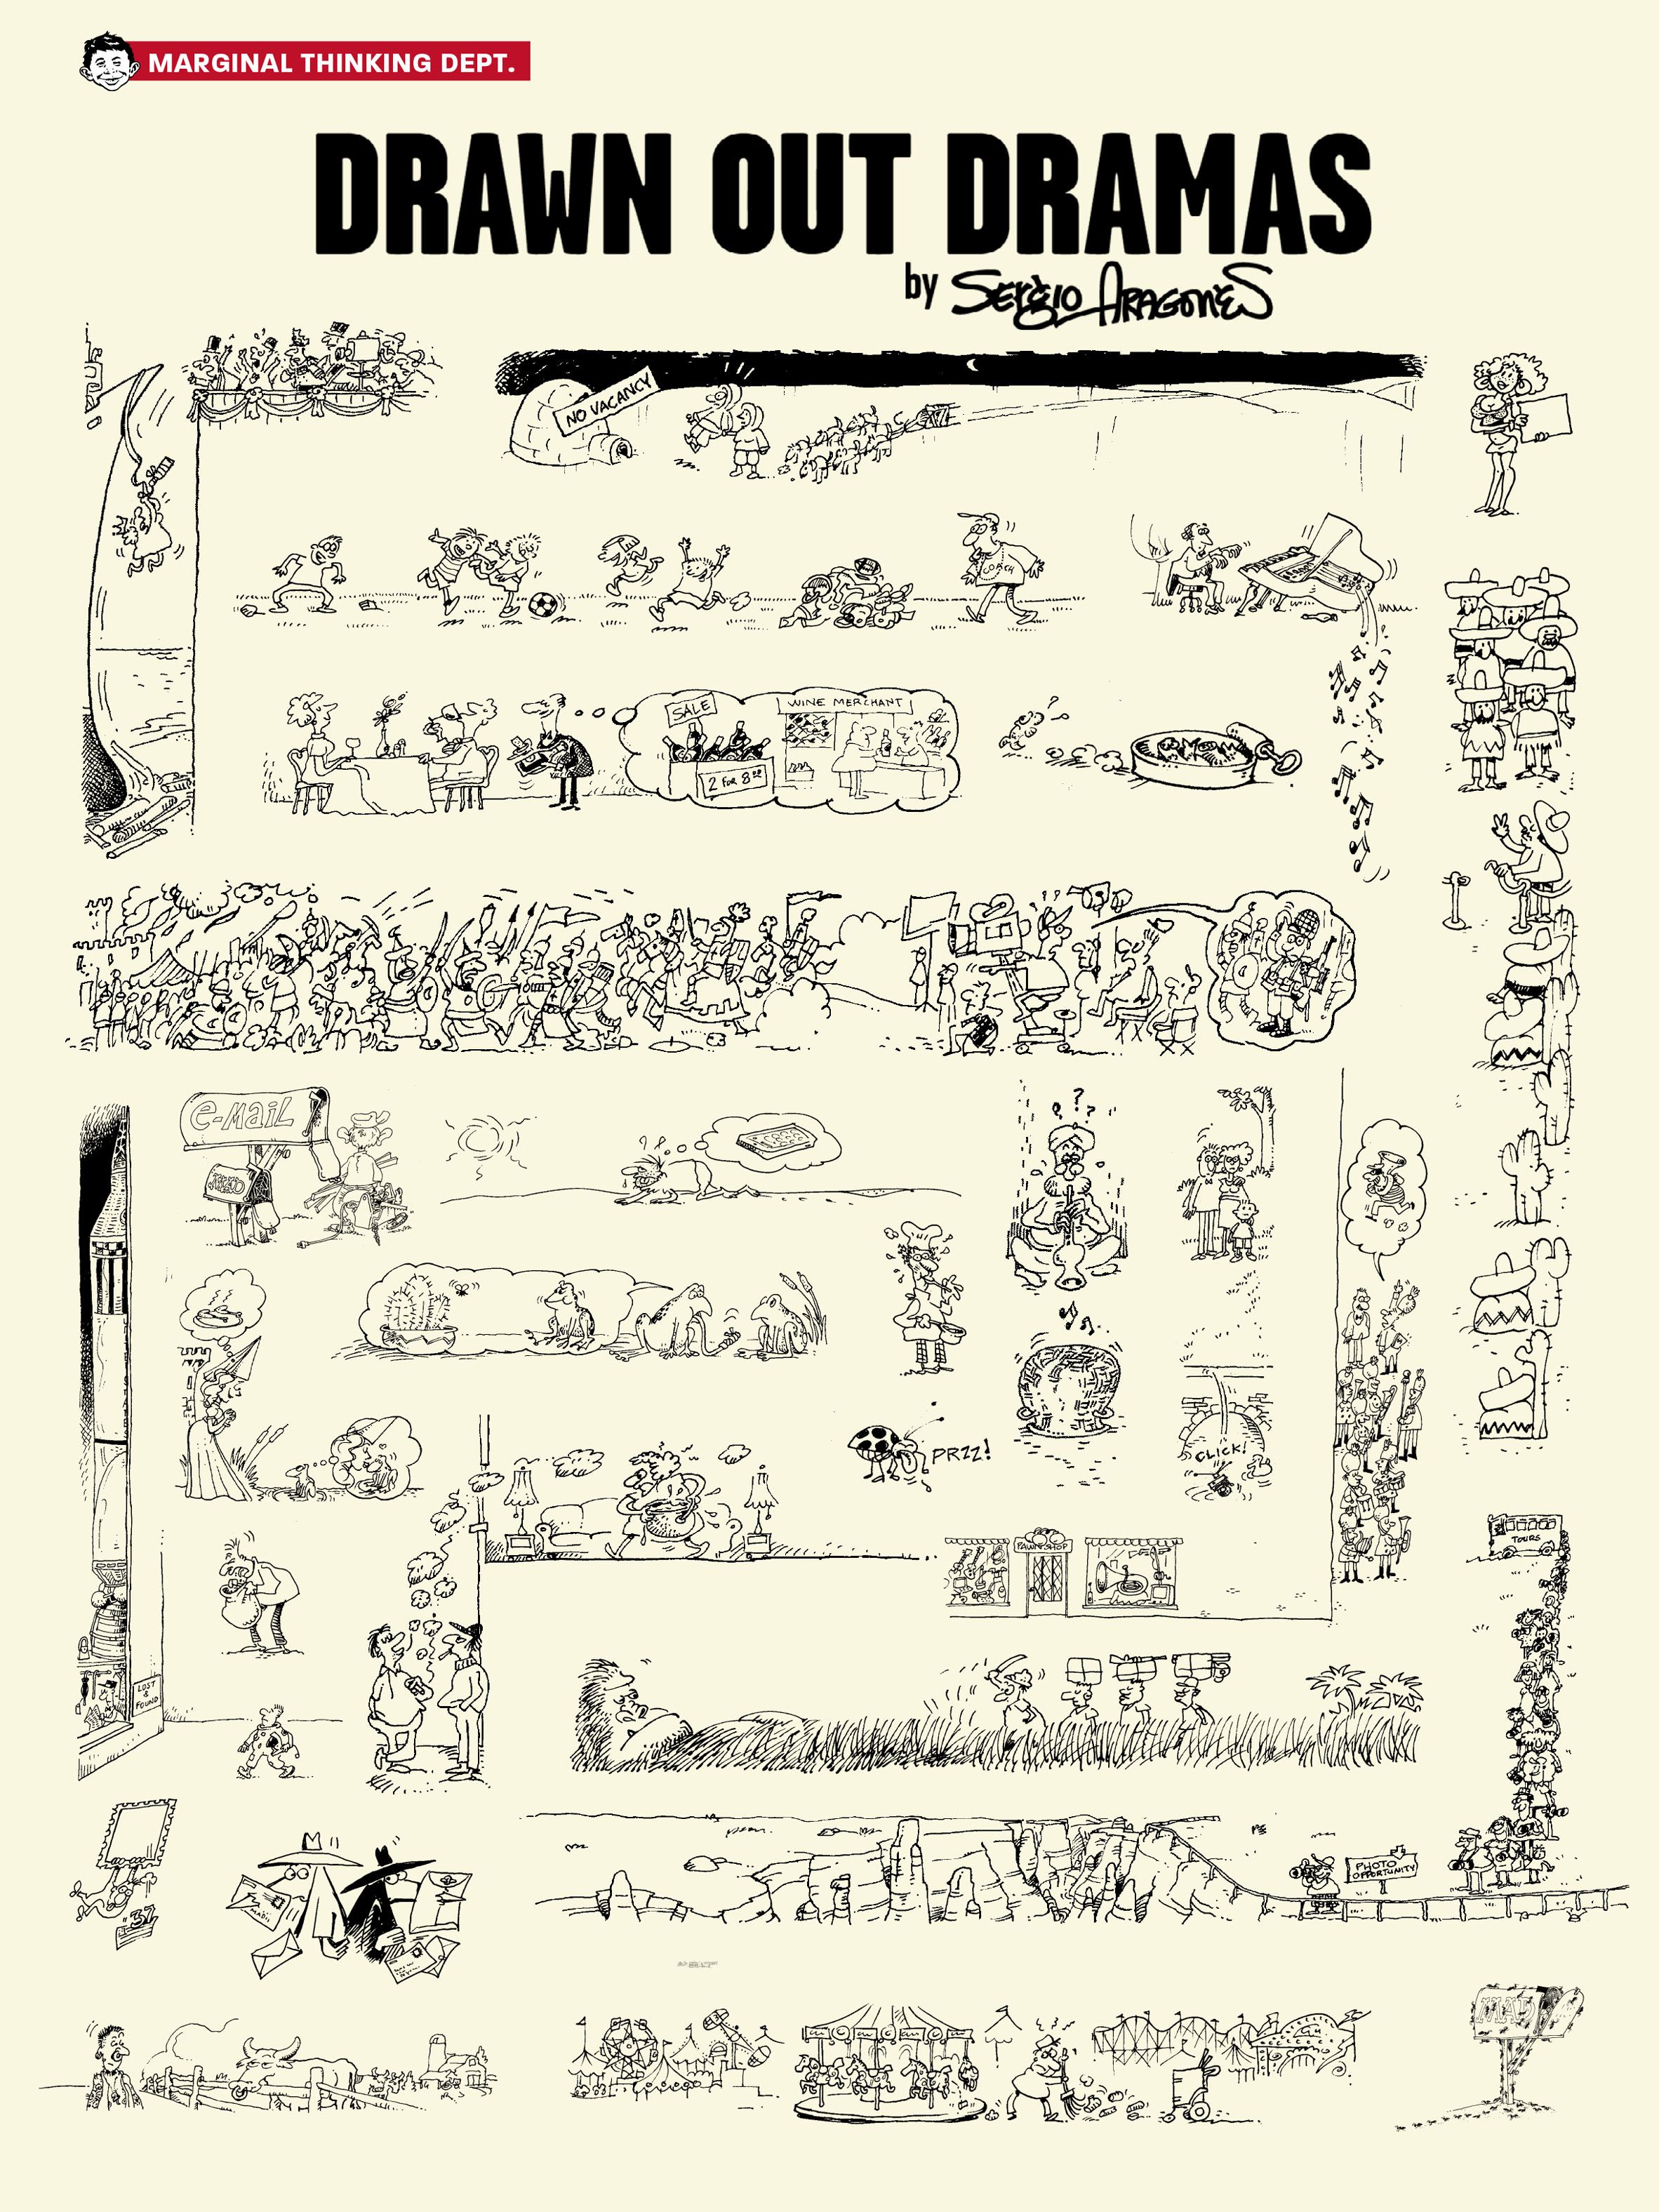 MARGINAL THINKING DEPT.
DRAWN OUT DRAMAS
by SERGIO ARAGONES
NO VACANCY
COACH
SALE
2 FOR 8
WINE MERCHANT
e-MAIL
PRZZ!
CLICK!
PAWN SHOP
TOURS
LOST
&
FOUND
PHOTO
OPPORTUNITY
37
MAD